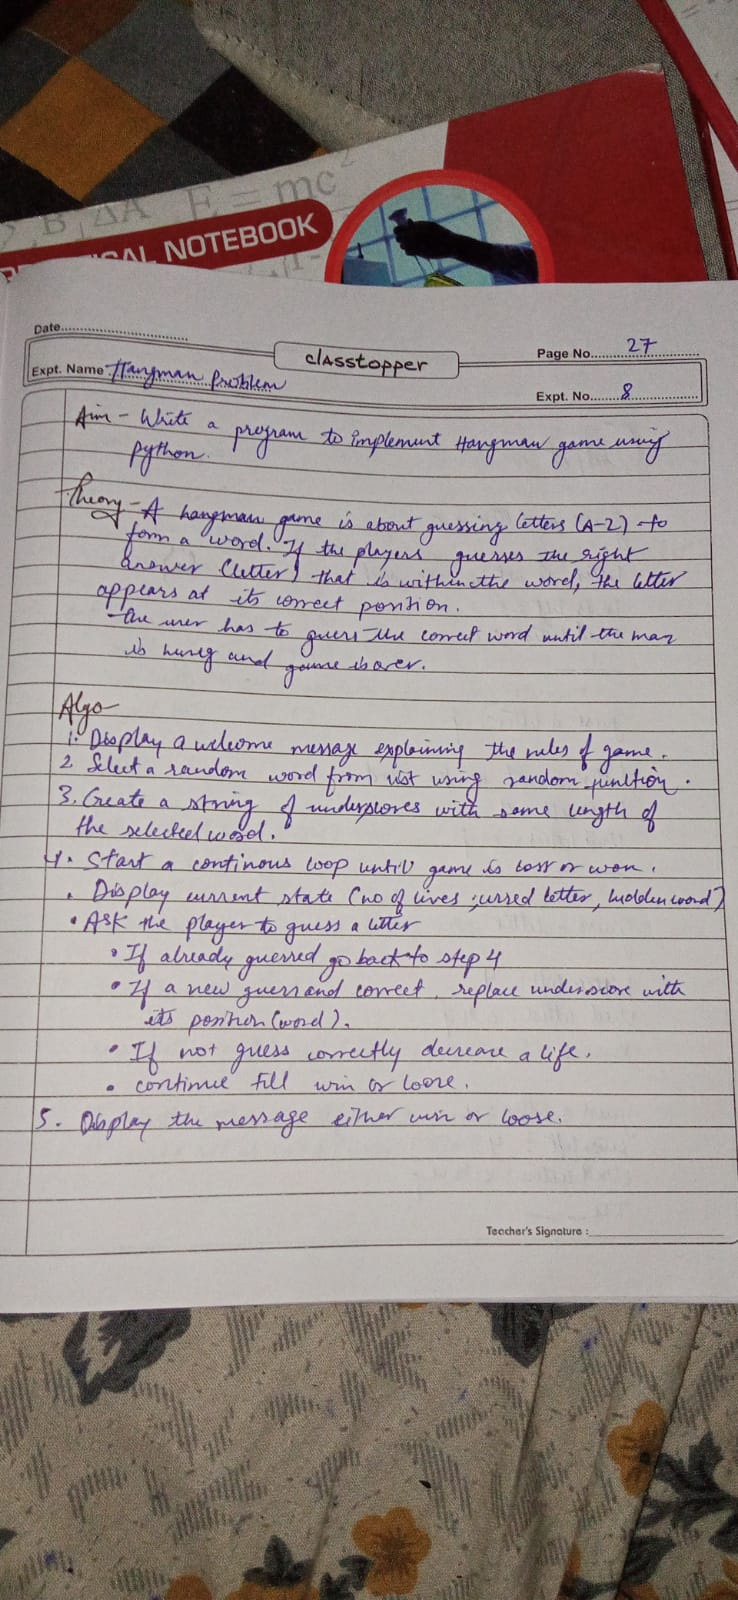 B, ΔA E = mc²
AL NOTEBOOK
Date
classtopper
Page No. 27
Expt. Name Hangman Problem
Expt. No. 8
Aim - Write a program to implement Hangman game using
python.
Theory - A hangman game is about guessing letters (A-Z) to
form a word. If the players guesses the right
answer (letter) that is within the word, the letter
appears at its correct position.
The user has to guess the correct word until the man
is hung and game is over.
Algo-
1. Display a welcome message explaining the rules of game.
2. Select a random word from list using random function.
3. Create a string of underscores with same length of
the selected word.
4. Start a continous loop until game is loss or won.
• Display current state (no of lives, used letter, hidden word)
• Ask the player to guess a letter
• If already guessed go back to step 4
• If a new guess and correct, replace underscore with
its position (word).
• If not guess correctly decrease a life.
• continue till win or loose.
5. Display the message either win or loose.
Teacher's Signature :